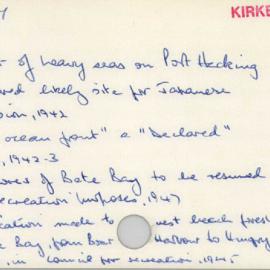 KIRKE
of heavy seas on Port Hacking
likely site for Japanese
, 1942
ocean front" a "Declared"
, 1942-3
of Bate Bay to be resumed
recreation purposes, 1947
made to west beach
Bay, from Boat Harbour to Hungry
, in Council for recreation, 1945